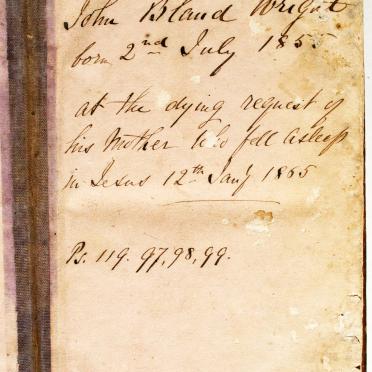 John Bland Wright
born 2nd July 1855
at the dying request of
his Mother who fell asleep
in Jesus 12th Jany 1865
Ps. 119. 97, 98, 99.